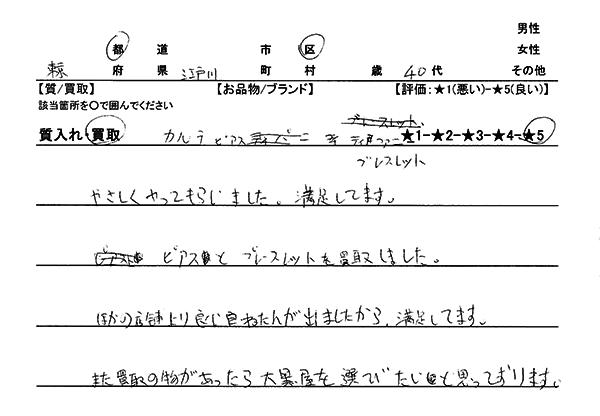 男性
都 道 市 区 女性
東京 府 県 江戸川 町 村 歳 40代 その他
【質/買取】 【お品物/ブランド】 【評価:★1(悪い)-★5(良い)】
該当箇所を〇で囲んでください
ブレースレット
質入れ・買取 カルテ ピアス ティファニー ★1-★2-★3-★4-★5
ブレスレット
やさしくやってもらいました。満足してます。
ピアスと ブレースレットを買取しました。
ほかの店舗より良いねだんが出ましたから、満足してます。
また買取の物があったら大黒屋を選びたいと思っております。